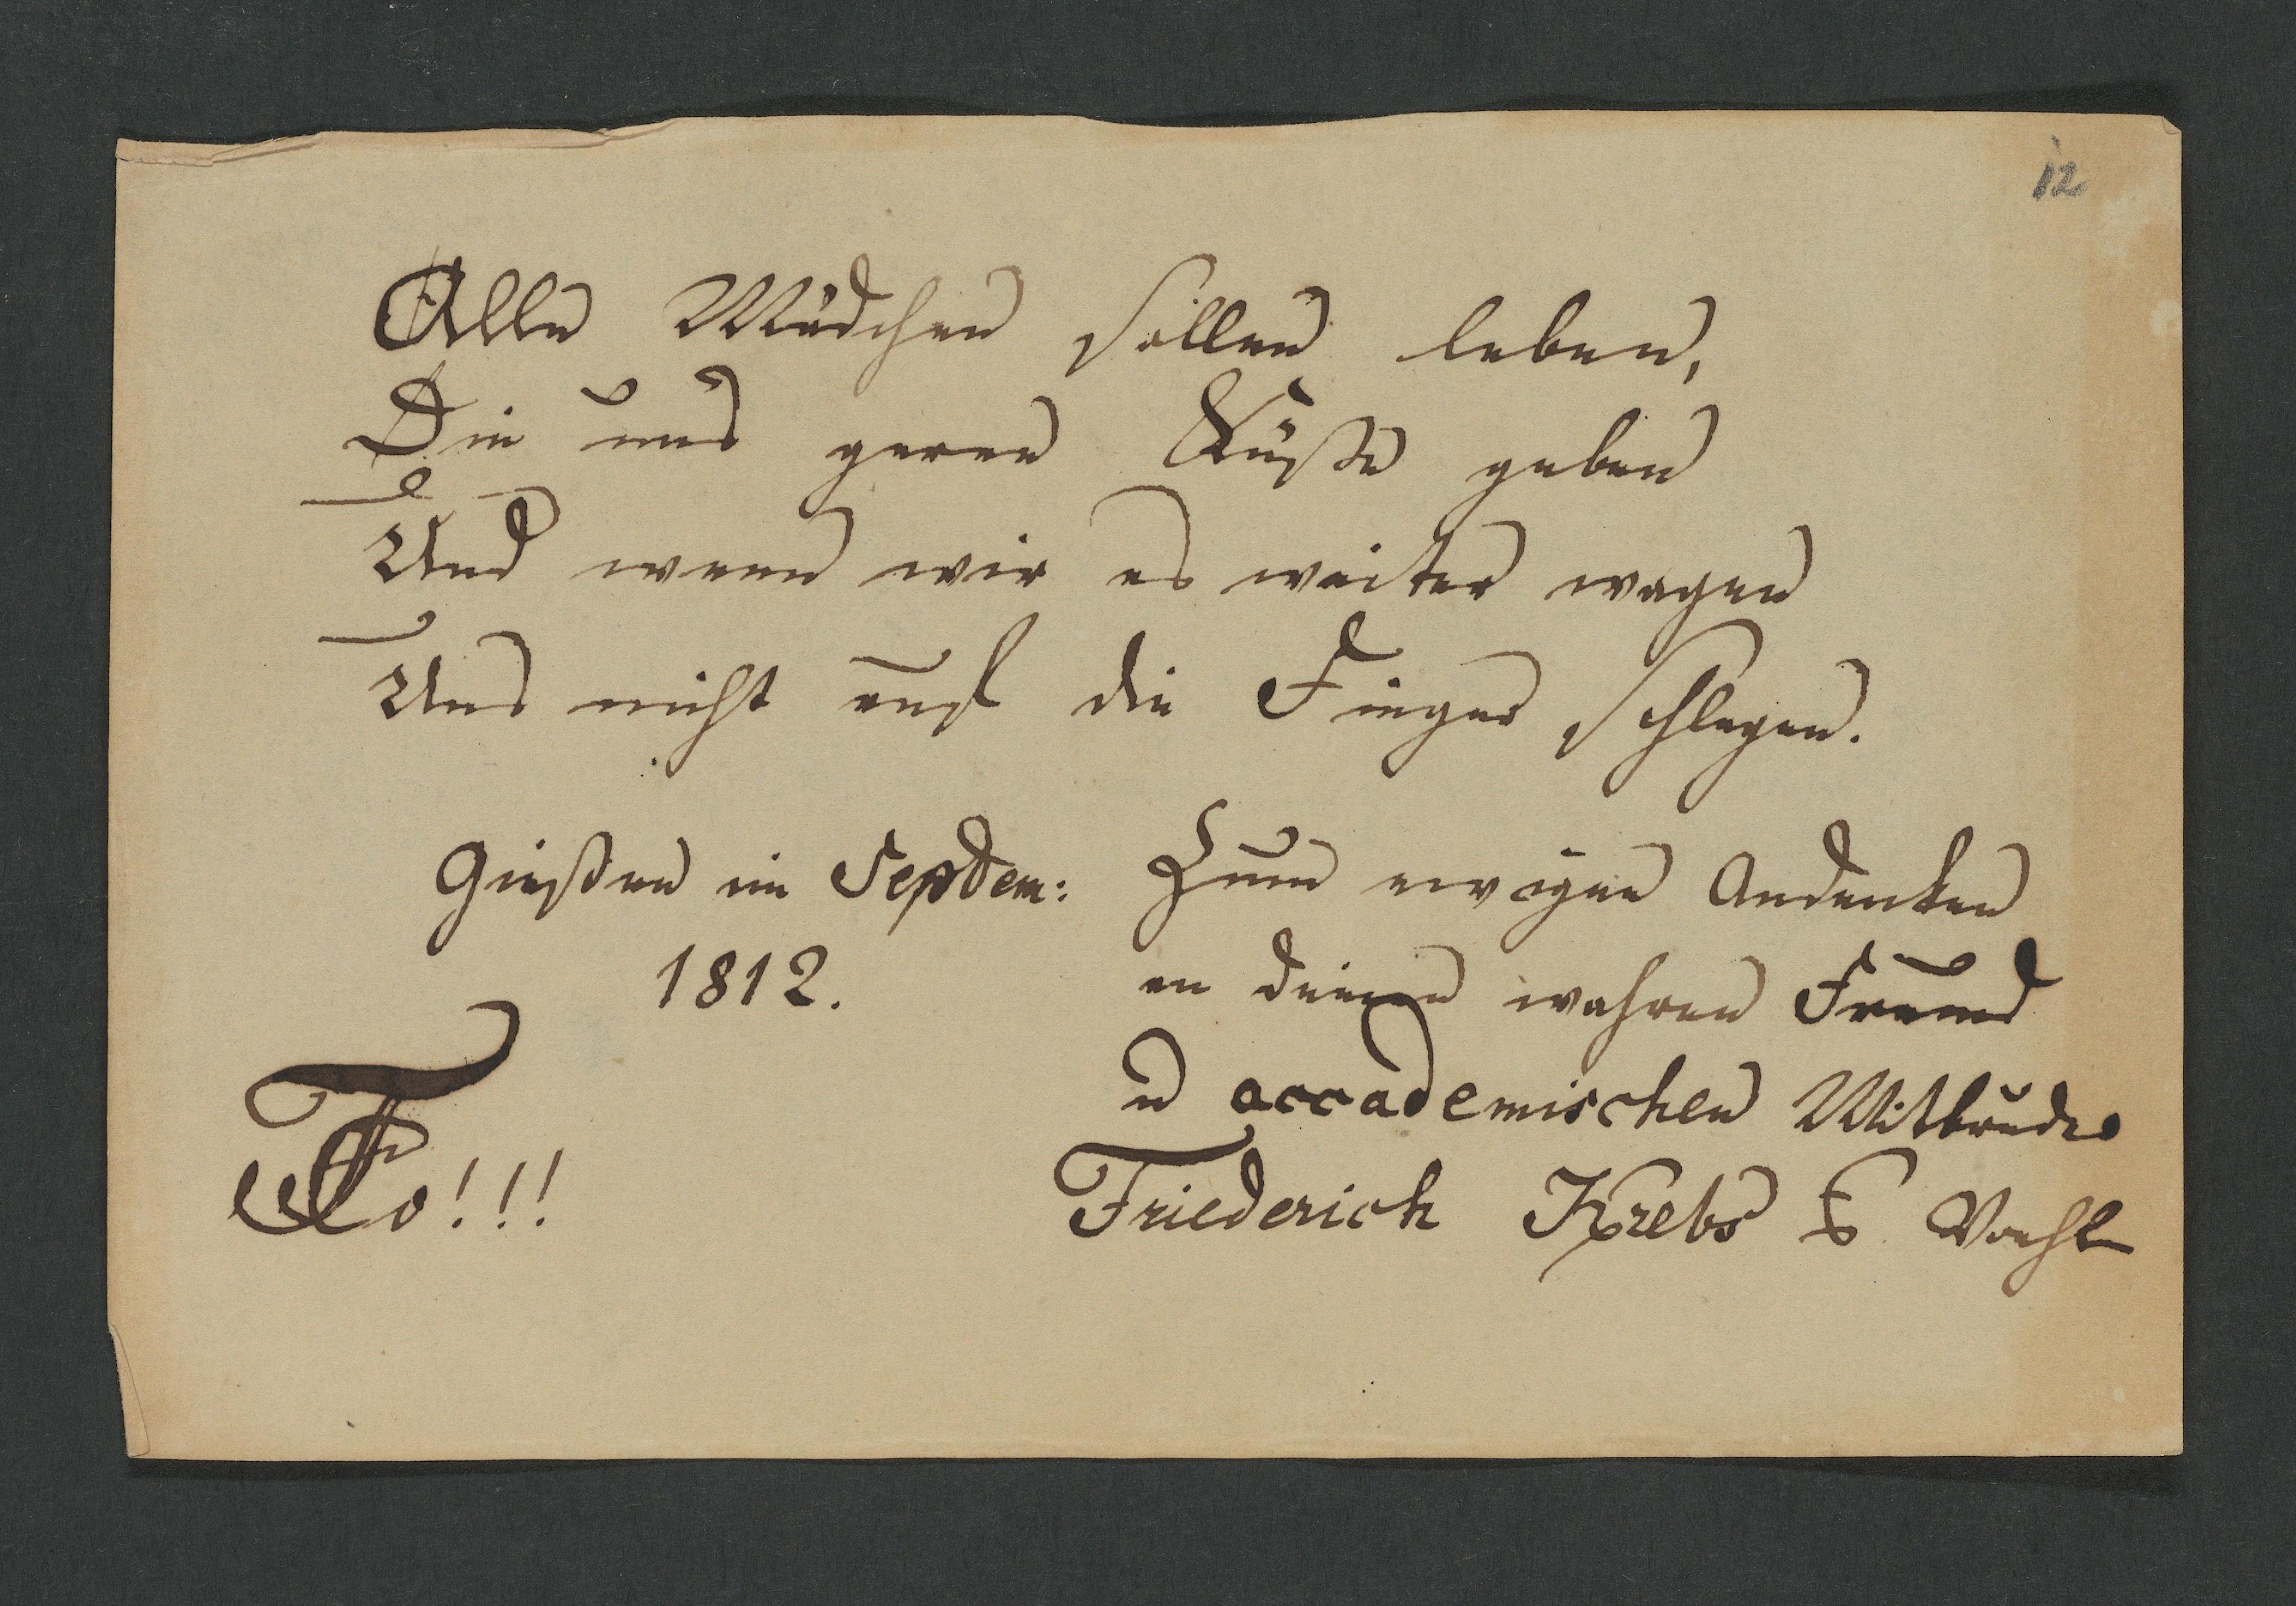 12
Alle Mädchen sollen leben,
Die uns geren Küße geben
Und wenn wir es weiter wagen
Uns nicht auf die Finger schlagen.
Gießen im Septem:
1812.
Zum ewigen Andenken
an deinen wahren Freund
u accademischen Mitbruder
Friederich Krebs